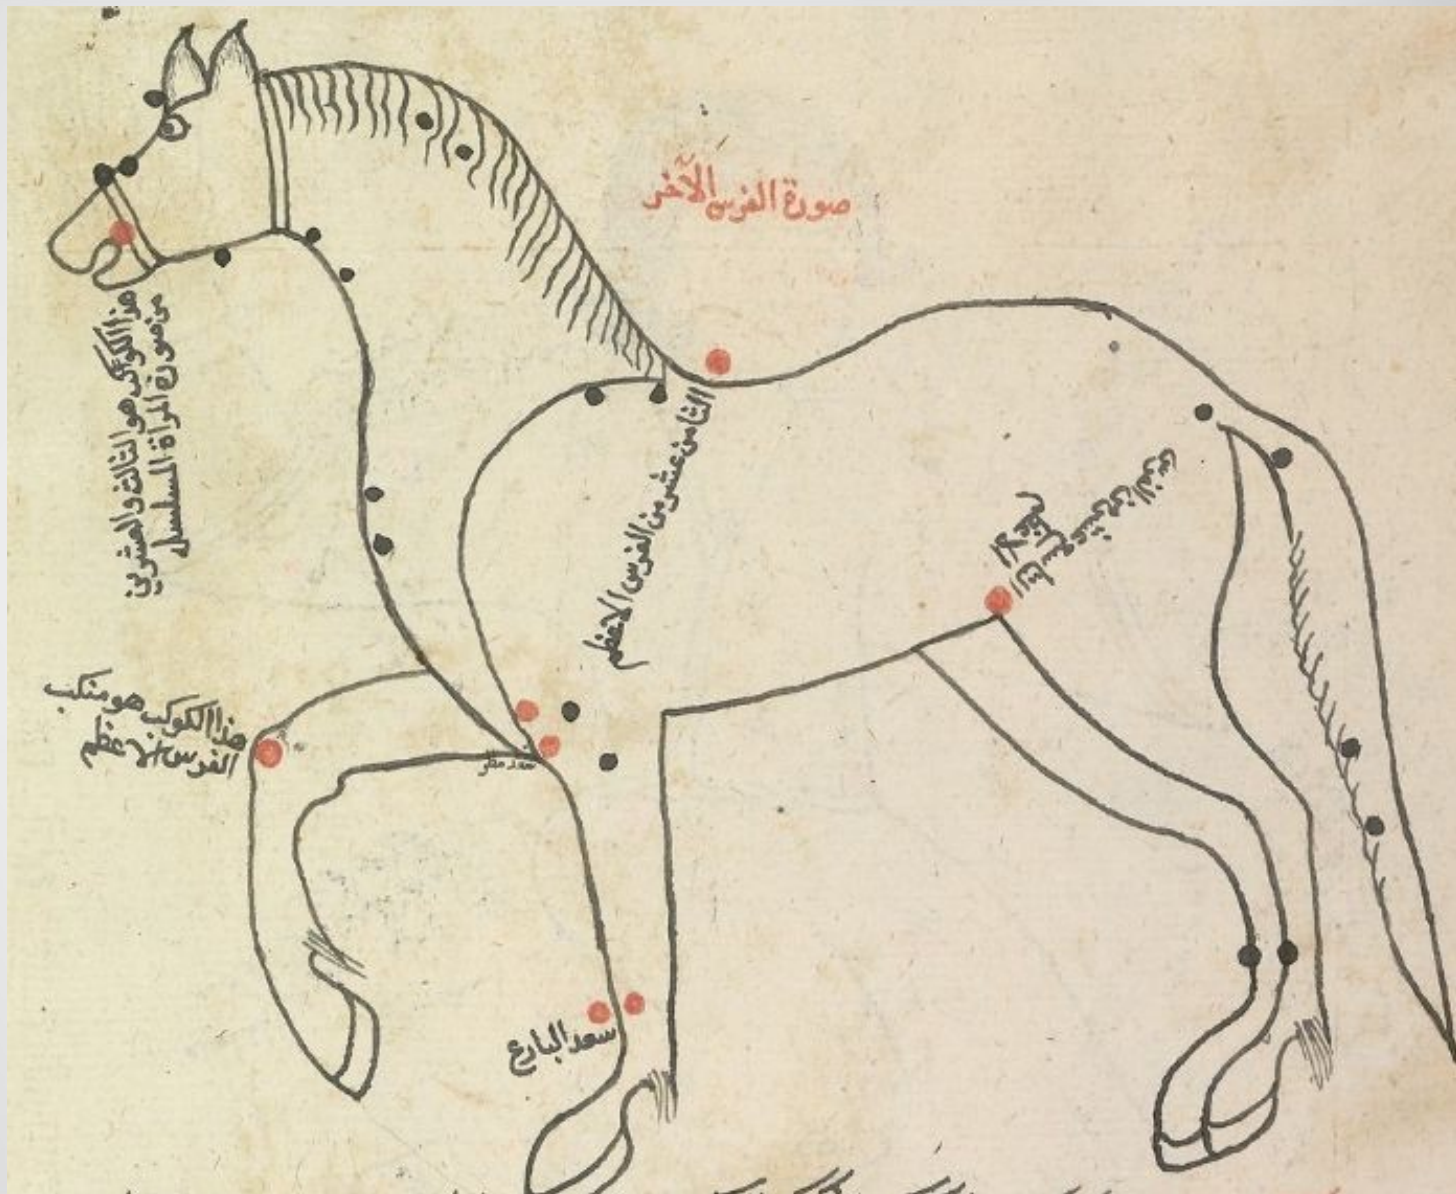 صورة الفرس الآخر
هذا الكوكب هو الثالث والعشرين
من صورة المرأة المسلسله
الثامن عشر من الفرس الاعظم
عشر من الفرس
الاعظم
هذا الكوكب هو منكب
الفرس الاعظم
سعد مطر
سعد البارع